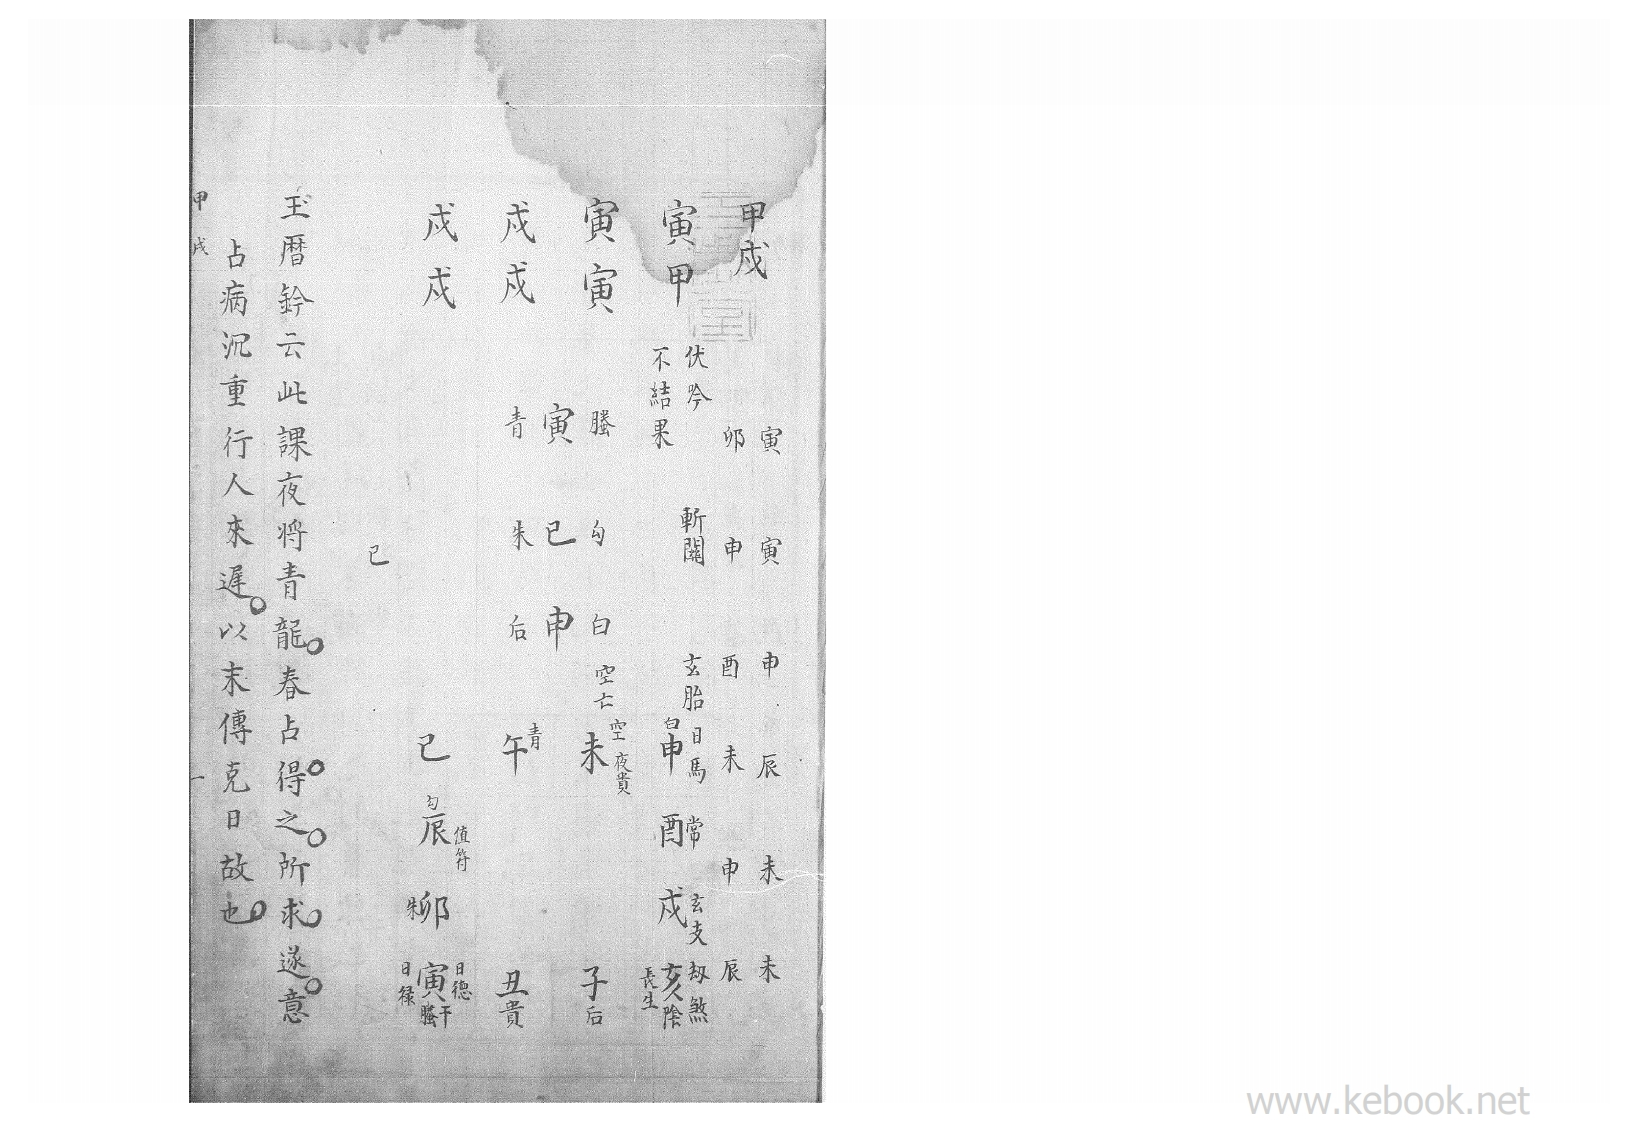 甲戌
寅 寅 申 辰 未 未
卯 申 酉 未 申 辰
伏吟 斬關 玄胎 日馬 常 玄支 劫煞
寅甲 不結果 白 申 酉 戌 亥 陰 長生
寅寅 螣 勾 白 空亡 未 空 夜貴 子 后
寅 巳 申
戌戌 青 朱 后 午 青 丑 貴
戌戌 巳 勾 辰 值符 卯 朱 寅 日德 日祿 螣 干
己
玉曆鈐云此課夜將青龍春占得之所求遂意
占病沉重行人來遲以末傳克日故也
甲戌 一
www.kebook.net